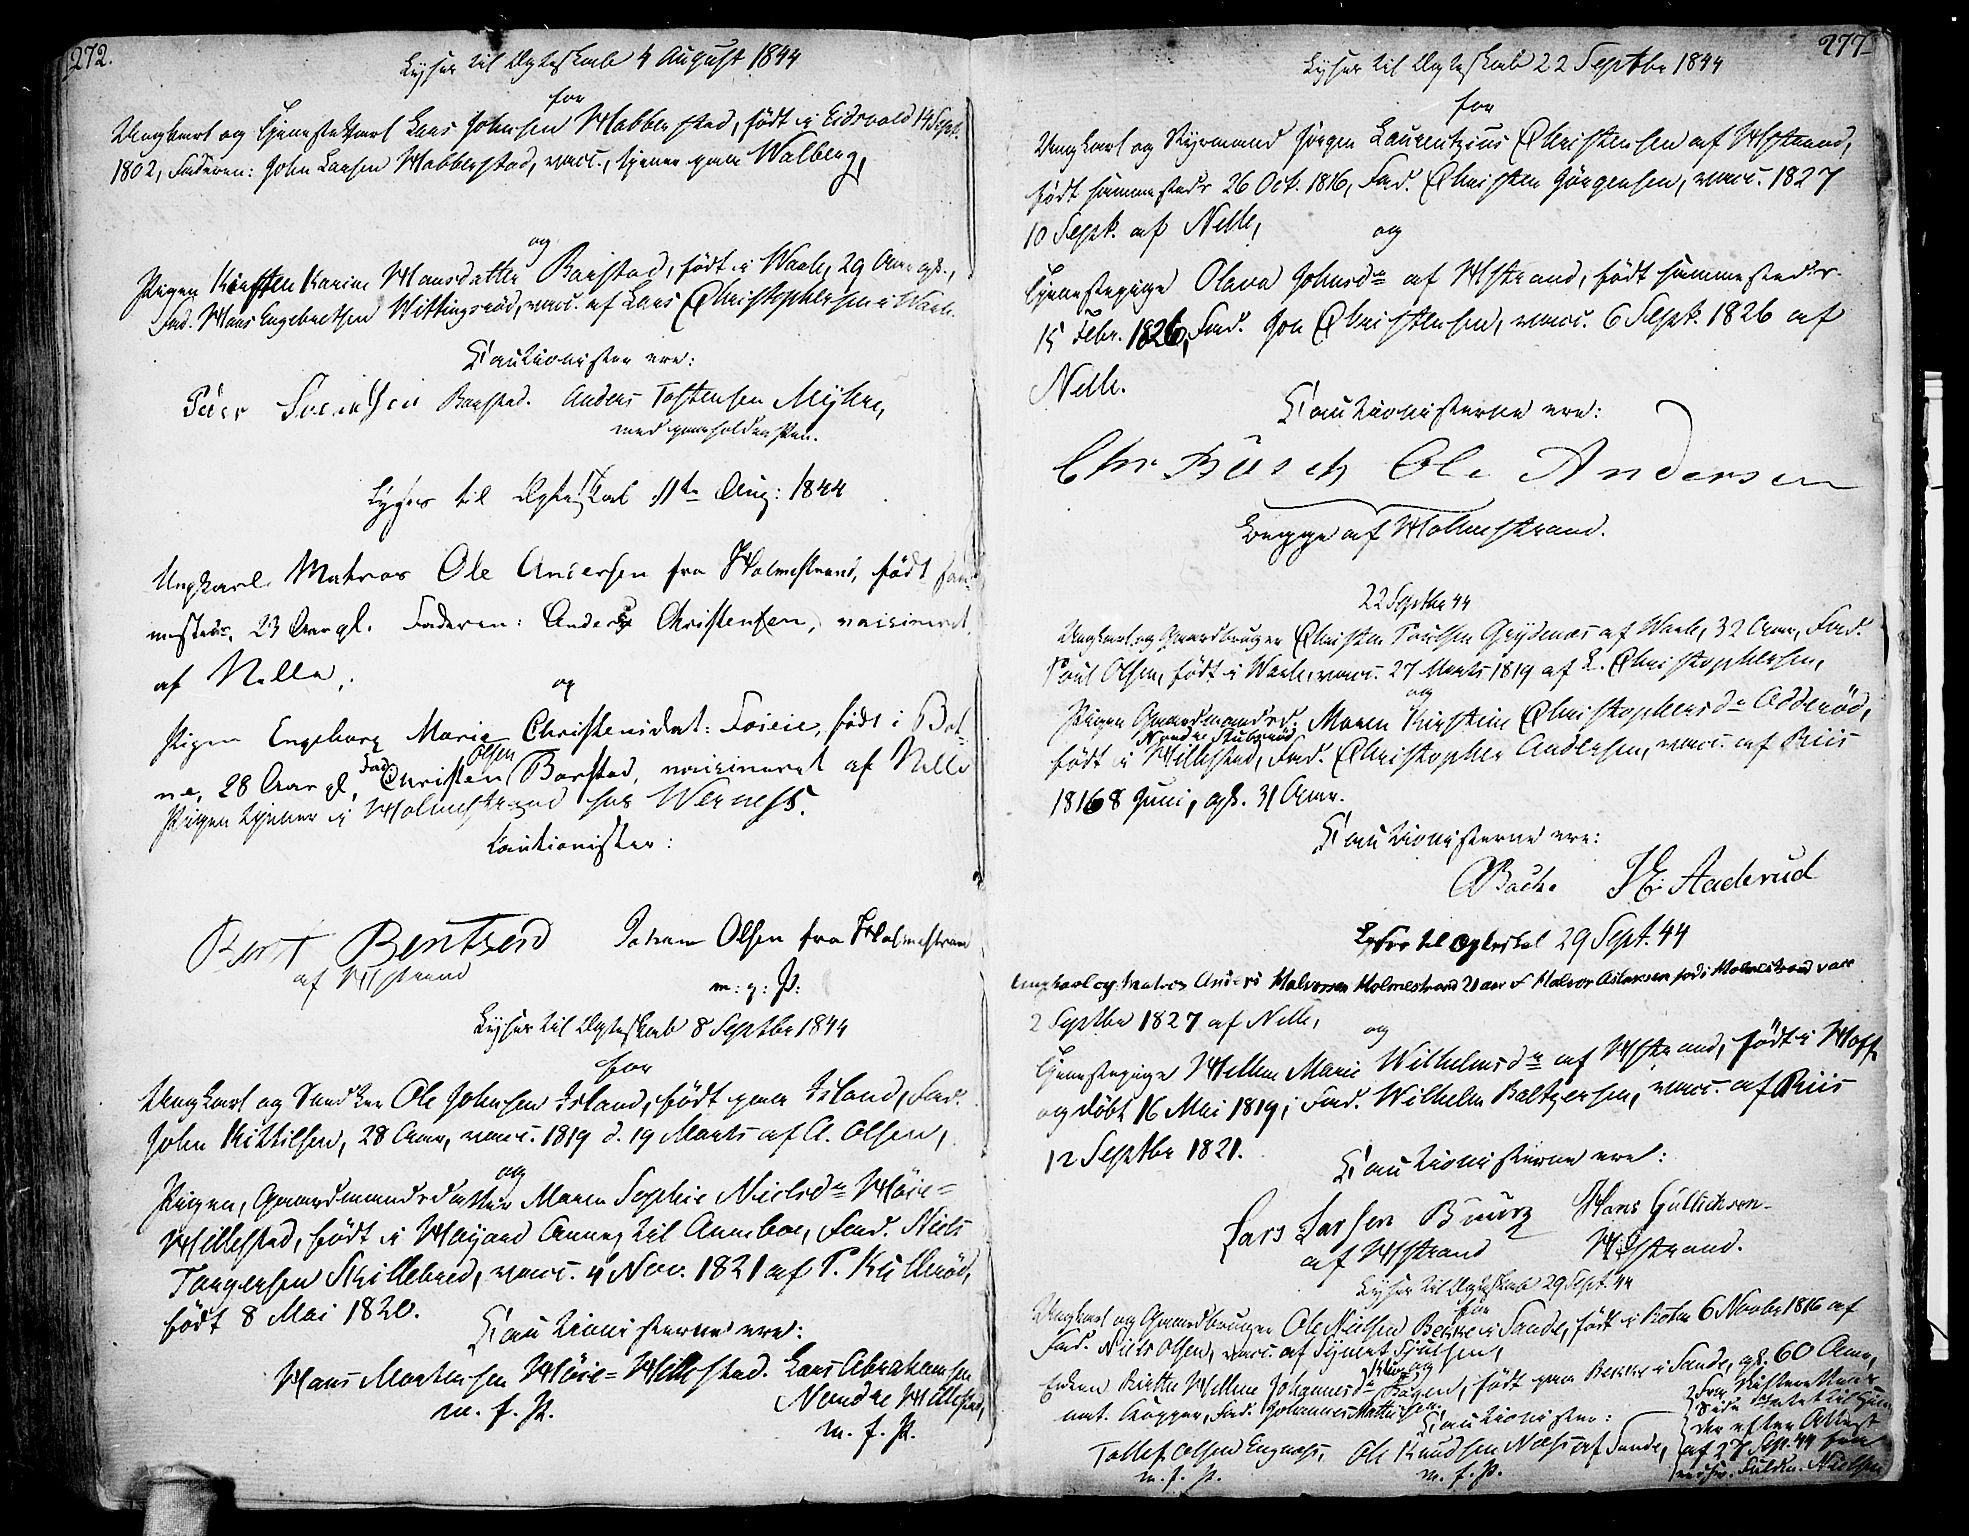 272.
Lyses til Ægteskab 4 August 1844
for
Ungkarl og Tjenestekarl Lars Johnsen Habberstad, født i Eidsvold 14 Sept.
1802, Faderen: John Larsen Habberstad, vacc., tjener paa Walberg,
og
Pigen Kirsten Karine Hansdatter Borstad, født i Waale, 29 Aar gl.,
Fad. Hans Engebretsen Wittingsrød, vacc. af Lars Christophersen i Waale.
Cautionister ere:
Peder Svendsen Borstad. Anders Tostensen Myhre,
med paaholden Pen.
Lyses til Ægteskab 11te Aug: 1844
Ungkarl Matros Ole Andersen fra Holmestrand, født sam-
mesteds, 23 Aar gl. Faderen: Anders Christensen, vaccineret
af Nelle,
og
Pigen Engeborg Marie Christensdat: født i Bot-
ne, 28 Aar gl, Fad. Christen Olsen Borstad, vaccineret af Nelle
Pigen tjener i Holmestrand hos Werness.
Cautionister:
Bent Bentsen Johan Olsen fra Holmestrand
af Hstrand
m: p: P:
Lyses til Ægteskab 8 Septbr 1844
for
Ungkarl og Snedker Ole Johnsen Island, født paa Island, Fad.
John Kittilsen, 28 Aar, vacc. 1819 d. 19 Marts af A. Olsen,
og
Pigen, Gaardmandsdatter Maren Sophie Nielsdr Høie=
Hillestad, født i Annex til Fad. Niels
Torgersen Skillebred, vacc. 4 Nov. 1821 af P. Kullerød,
født 8 Mai 1820.
Cautionisterne ere:
Hans Mortensen Høie=Hillestad. Lars Abrahamsen
Nordre Hillestad,
m. f. P.
m. f. P.
277
Lyses til Ægteskab 22 Septbr 1844
for
Ungkarl og Styrmand Jørgen Laurentzius Christensen af Hstrand,
født sammesteds 26 Oct. 1816, Fad. Christen Jörgensen, vacc. 1827
10 Sept. af Nelle,
og
Tjenestepige Olava Johnsdr af Hstrand, født sammesteds
15 Febr. 1826, Fad. Jon Christensen, vacc. 6 Sept. 1826 af
Nelle.
Cautionisterne ere:
Chr Büsch Ole Andersen
begge af Holmestrand.
22 Septbr 44
Ungkarl og Gaardbruger Christen Paulsen Grydenæs af Waale, 32 Aar, Fad.
Paul Olsen, født i Waale, vacc. 27 Marts 1819 af L. Christophersen,
og
Pigen Gaardmandsd. Maren Kirstine Christophersdr Adderød,
født i Nordre Stubsrød Hillestad, Fad. Christopher Andersen, vacc. af Riis
1816 8 Juni, gl. 31 Aar.
Cautionisterne ere:
Bache H E: Aaderud
Lyses til Ægteskab 29 Sept. 44
Ungkarl og Matros Anders Halvorsen Holmestrand 21 aar F Halvor Aslaksen fød i Holmestrand vacc
2 Septbr 1827 af Nelle,
og
Tjenestepige Hellene Marie Wilhelmsdr af Hstrand, født i Hoff
og døbt 16 Mai 1819, Fad. Wilhelm Baltzersen, vacc. af Riis
12 Septbr 1821.
Cautionisterne ere:
Lars Larsen Hans Gullichsen
af Hstrand Hstrand.
Lyses til Ægteskab 29 Sept. 44
for
Ungkarl og Gaardbruger Ole Nielsen Bekke i Sande, født i Botne 6 Novbr 1816 af
Fad. Niels Olsen, vacc. af
og
Enken Birthe Helline Johannesdr født paa Bekke i Sande, gl. 60 Aar,
nat. Kopper, Fad. Johannes
Cautionister:
Tollef Olsen Engnæs, Ole Knudsen Næss af Sande,
m. f. P. m. f. P.
efter Attest
af 27 Sep. 44 fra